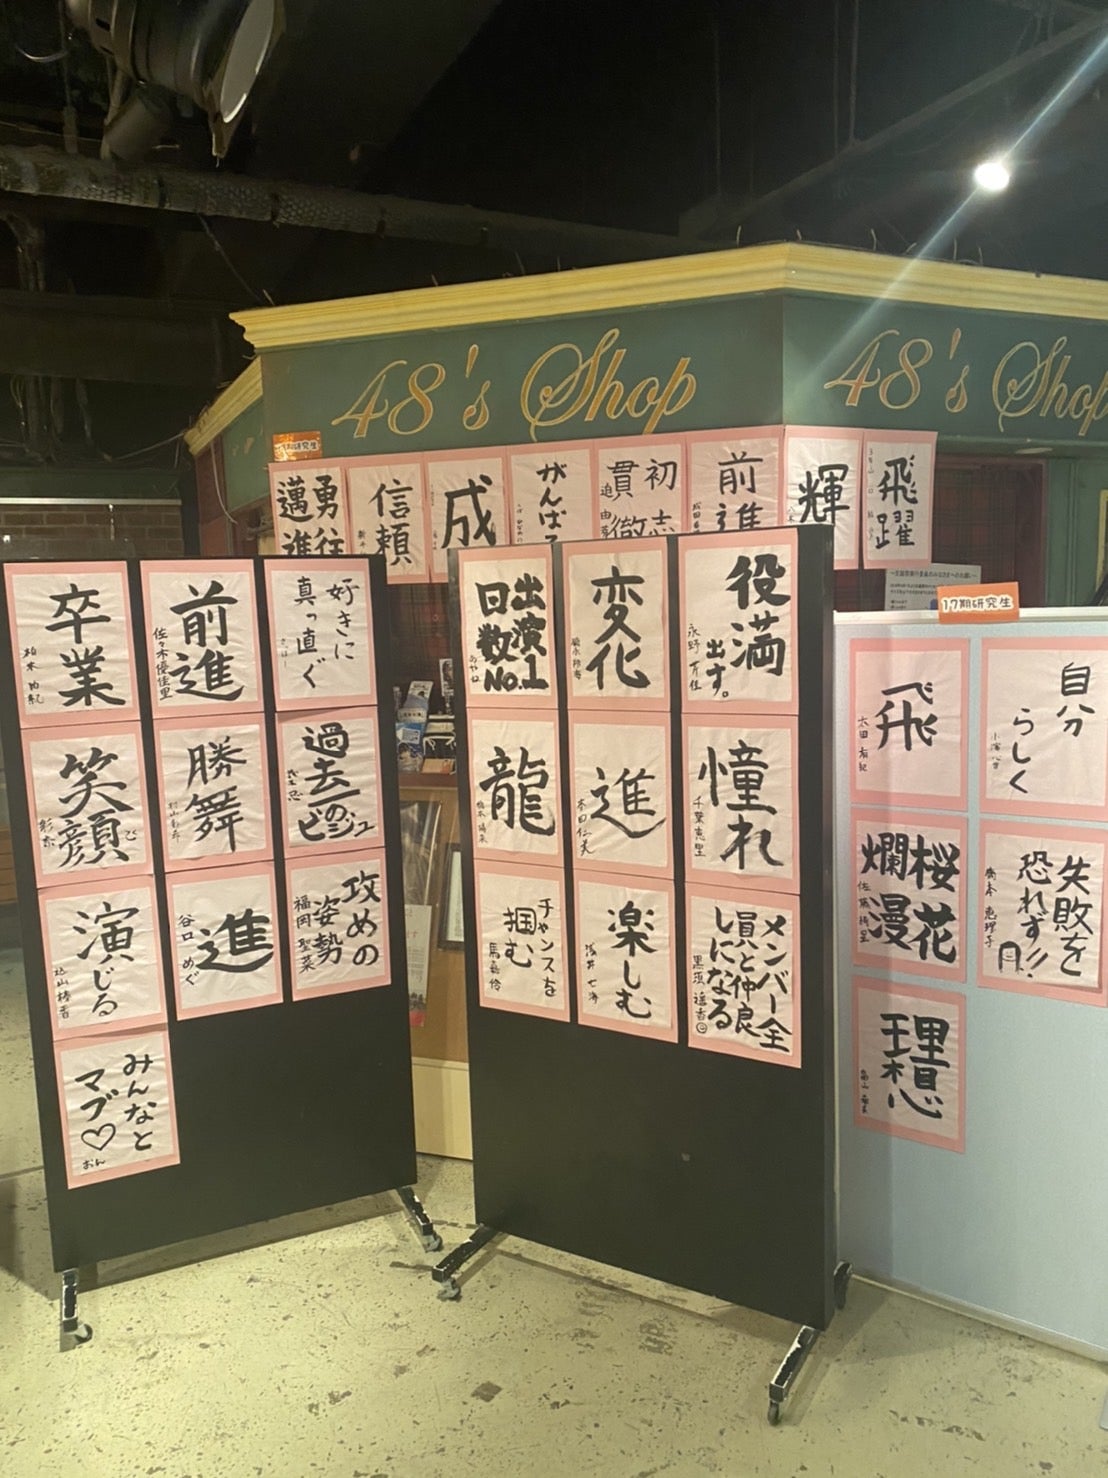 48's Shop
48's Shop
勇往
邁進
信頼
成
がんばる
初志
貫徹
前進
輝
飛躍
卒業
柏木由紀
前進
佐々木優佳里
好きに
真っ直ぐ
笑顔
彩奈
勝舞
過去一の
ビジュ
演じる
込山榛香
進
谷口めぐ
攻めの
姿勢
福岡聖菜
みんなと
マブ♡
おん
出演
日数
No.1
変化
役満
出す。
永野芹佳
龍
橋本陽菜
進
本田仁美
憧れ
千葉恵里
チャンスを
掴む
馬嘉伶
楽しむ
浅井七海
メンバー全
員と仲良
しになる
黒須遥香
17期研究生
飛
太田有紀
自分
らしく
桜花
爛漫
佐藤綺星
失敗を
恐れず!!
橋本恵理子
理想